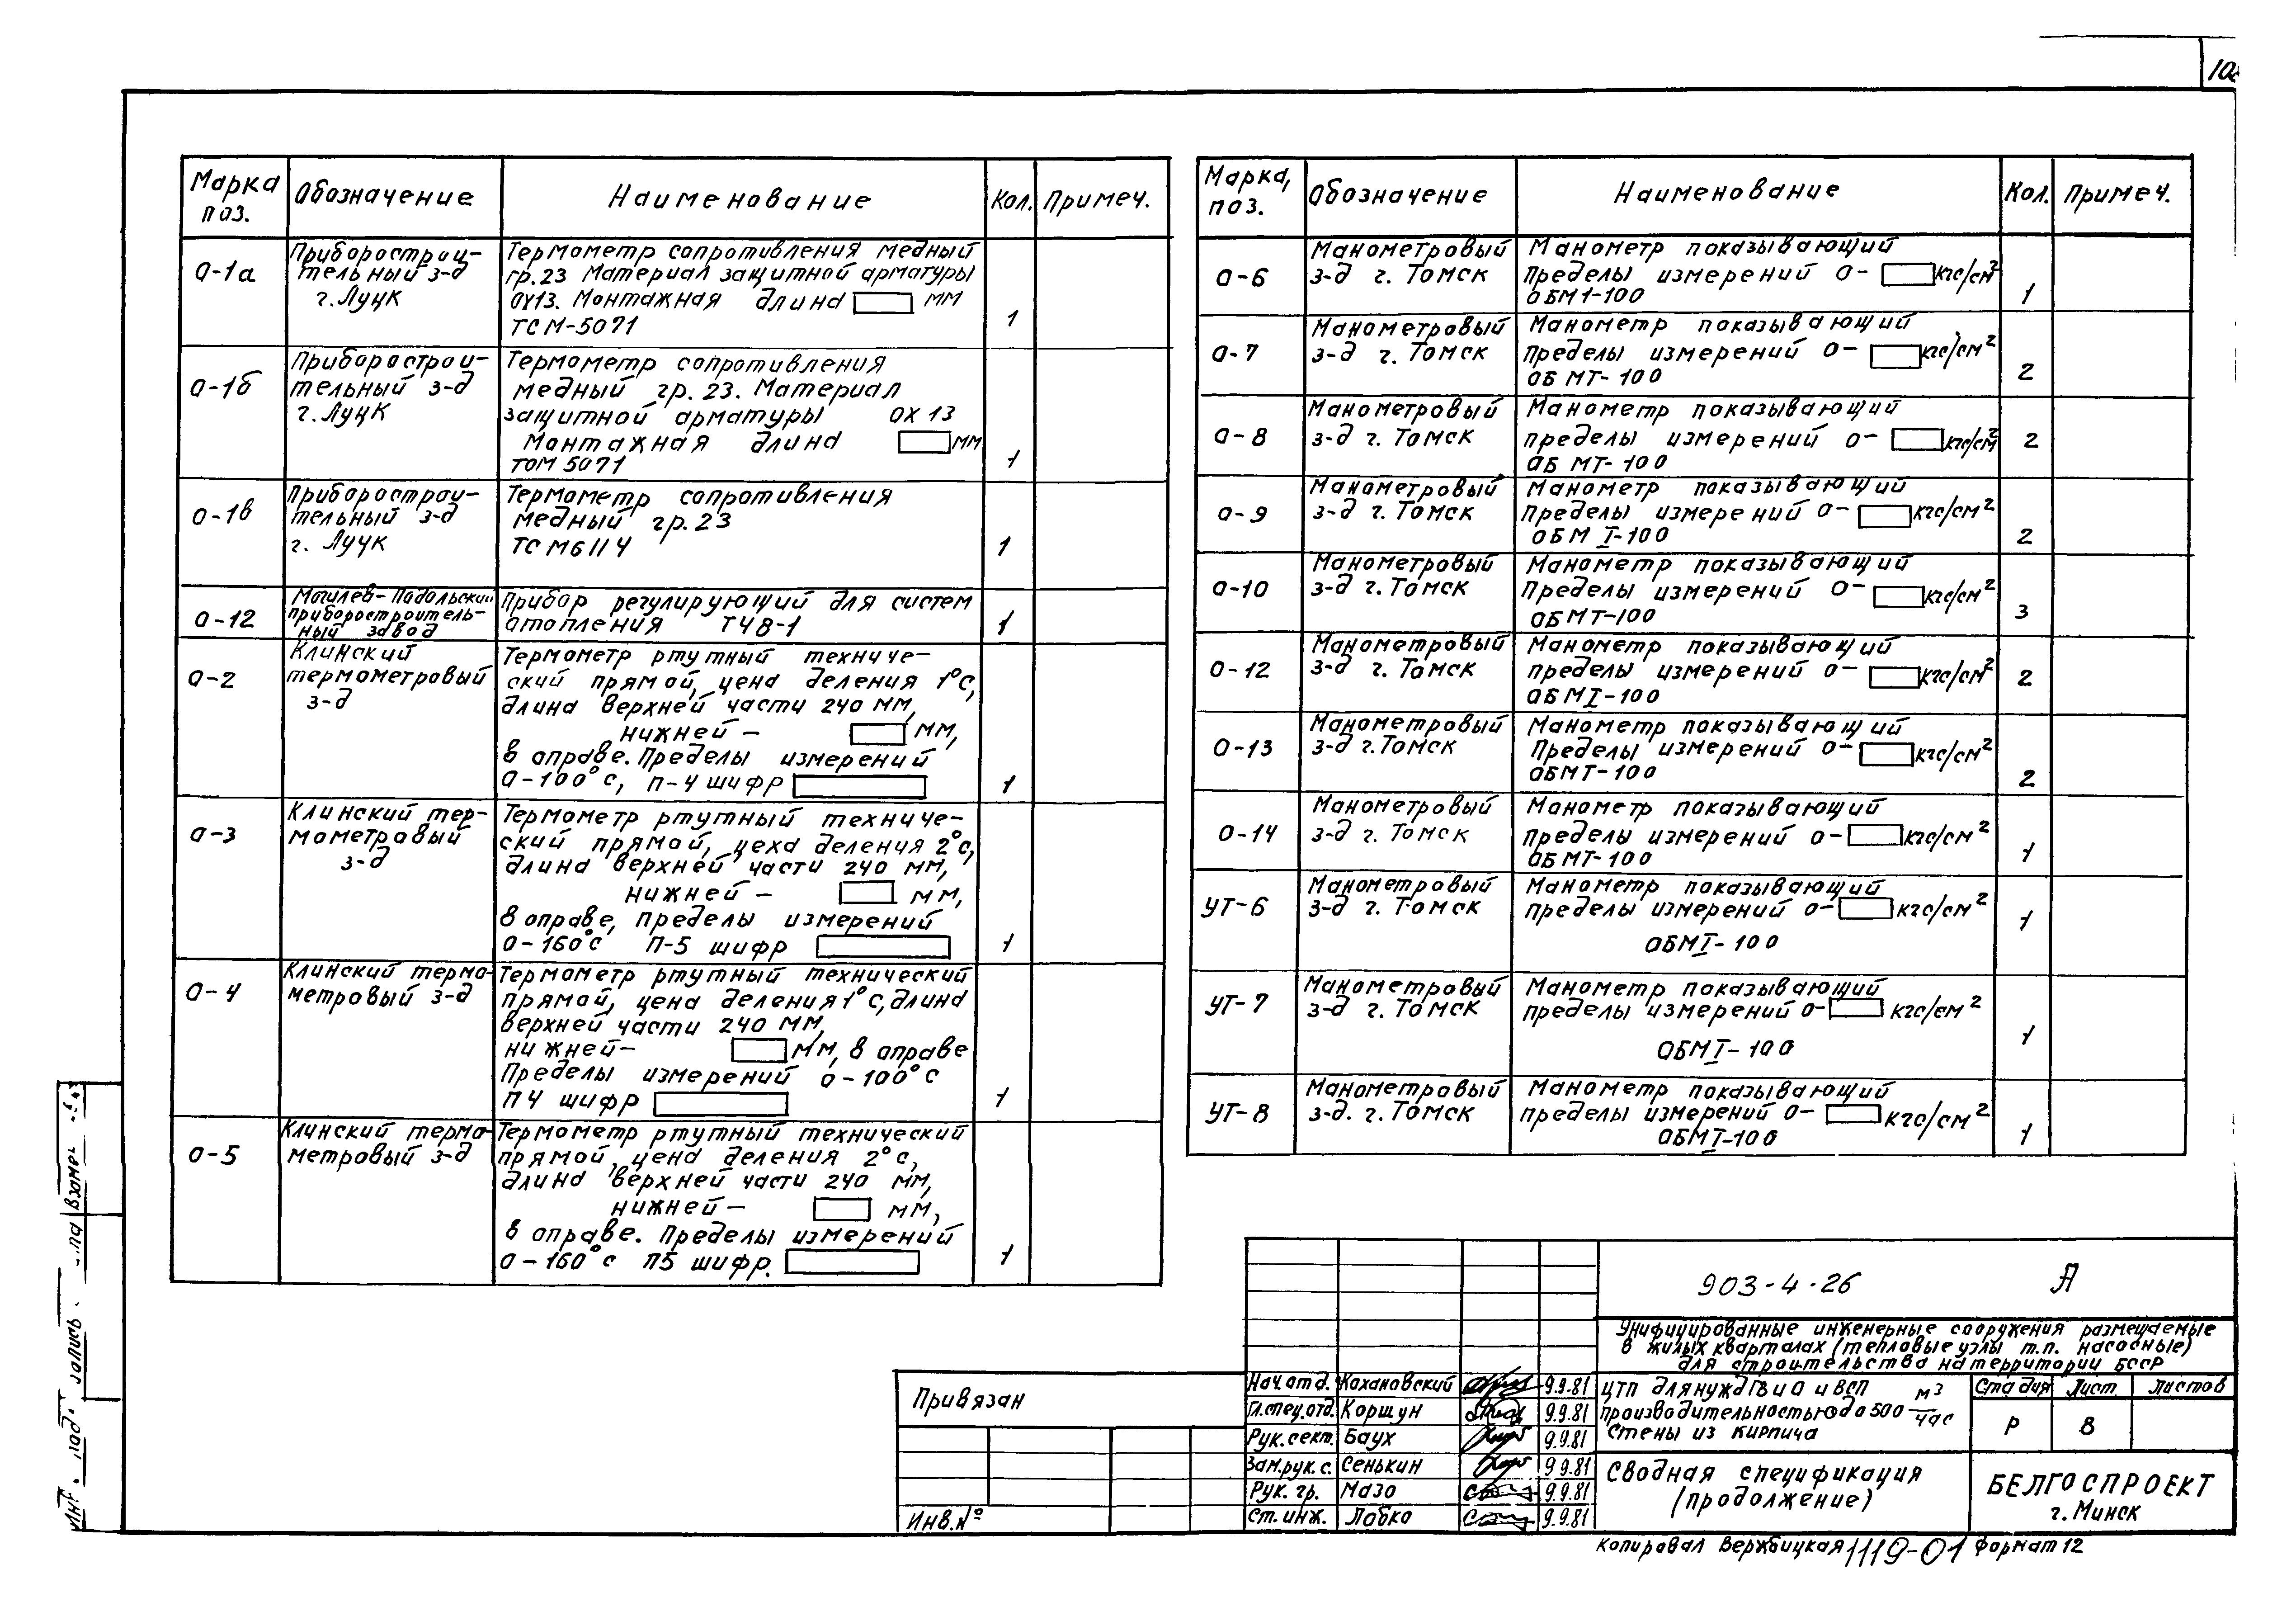 Марка поз.
Обозначение
Наименование
Кол.
Примеч.
О-1а
Приборострои-
тельный з-д
г.Луцк
Термометр сопротивления медный
гр.23 Материал защитной арматуры
ОХ13. Монтажная длина мм
ТСМ-5071
1
О-1б
Приборострои-
тельный з-д
г.Луцк
Термометр сопротивления
медный гр.23. Материал
защитной арматуры ОХ13
Монтажная длина мм
ТОМ5071
1
О-1в
Приборострои-
тельный з-д
г. Луцк
Термометр сопротивления
медный гр.23
ТСМ6114
1
О-12
Могилев-Подольский
приборостроитель-
ный завод
Прибор регулирующий для систем
отопления Т48-1
1
О-2
Клинский
термометровый
з-д
Термометр ртутный техниче-
ский прямой, цена деления 1°С,
длина верхней части 240 мм,
нижней - мм,
в оправе. Пределы измерений
0-100°с, П-4 шифр
1
О-3
Клинский тер-
мометровый
з-д
Термометр ртутный техниче-
ский прямой, цеха деления 2°с,
длина верхней части 240 мм,
нижней - мм,
в оправе, пределы измерений
0-160°с П-5 шифр
1
О-4
Клинский термо-
метровый з-д
Термометр ртутный технический
прямой, цена деления 1°с, длина
верхней части 240 мм,
нижней- мм, в оправе
Пределы измерений 0-100°с
П4 шифр
1
О-5
Клинский термо-
метровый з-д
Термометр ртутный технический
прямой, цена деления 2°с,
длина верхней части 240 мм,
нижней - мм,
в оправе. Пределы измерений
0-160°с П5 шифр.
1
Марка, поз.
Обозначение
Наименование
Кол.
Примеч.
О-6
Манометровый
з-д г. Томск
Манометр показывающий
Пределы измерений 0- кгс/см²
ОБМ1-100
1
О-7
Манометровый
з-д г. Томск
Манометр показывающий
Пределы измерений 0- кгс/см²
ОБМТ-100
2
О-8
Манометровый
з-д г. Томск
Манометр показывающий
пределы измерений 0- кгс/см²
ОБМТ-100
2
О-9
Манометровый
з-д г. Томск
Манометр показывающий
Пределы измерений 0- кгс/см²
ОБМ I-100
2
О-10
Манометровый
з-д г. Томск
Манометр показывающий
Пределы измерений 0- кгс/см²
ОБМТ-100
3
О-12
Манометровый
з-д г. Томск
Манометр показывающий
пределы измерений 0- кгс/см²
ОБМI-100
2
О-13
Манометровый
з-д г.Томск
Манометр показывающий
Пределы измерений 0- кгс/см²
ОБМТ-100
2
О-14
Манометровый
з-д г. Томск
Манометр показывающий
Пределы измерений 0- кгс/см²
ОБМТ-100
1
УТ-6
Манометровый
з-д г. Томск
Манометр показывающий
пределы измерений 0- кгс/см²
ОБМI-100
1
УТ-7
Манометровый
з-д г. Томск
Манометр показывающий
пределы измерений 0- кгс/см²
ОБМI-100
1
УТ-8
Манометровый
з-д. г. Томск
Манометр показывающий
пределы измерений 0- кгс/см²
ОБМI-100
1
903-4-26 А
Унифицированные инженерные сооружения размещаемые
в жилых кварталах (тепловые узлы т.п. насосные)
для строительства на территории БССР
Привязан
Инв.№
Нач.отд. Кохановский 9.9.81
Гл.спец.отд. Коршун 9.9.81
Рук.сект. Баух 9.9.81
Зам.рук.с. Сенькин 9.9.81
Рук. гр. Мазо 9.9.81
Ст.инж. Лобко 9.9.81
ЦТП для нужд ГВ и О и ВСП
производительностью до 500 м3/час
Стены из кирпича
Стадия Лист Листов
Р 8
Сводная спецификация
(продолжение)
БЕЛГОСПРОЕКТ
г. Минск
Копировал Вержбицкая 1119-01 Формат 12